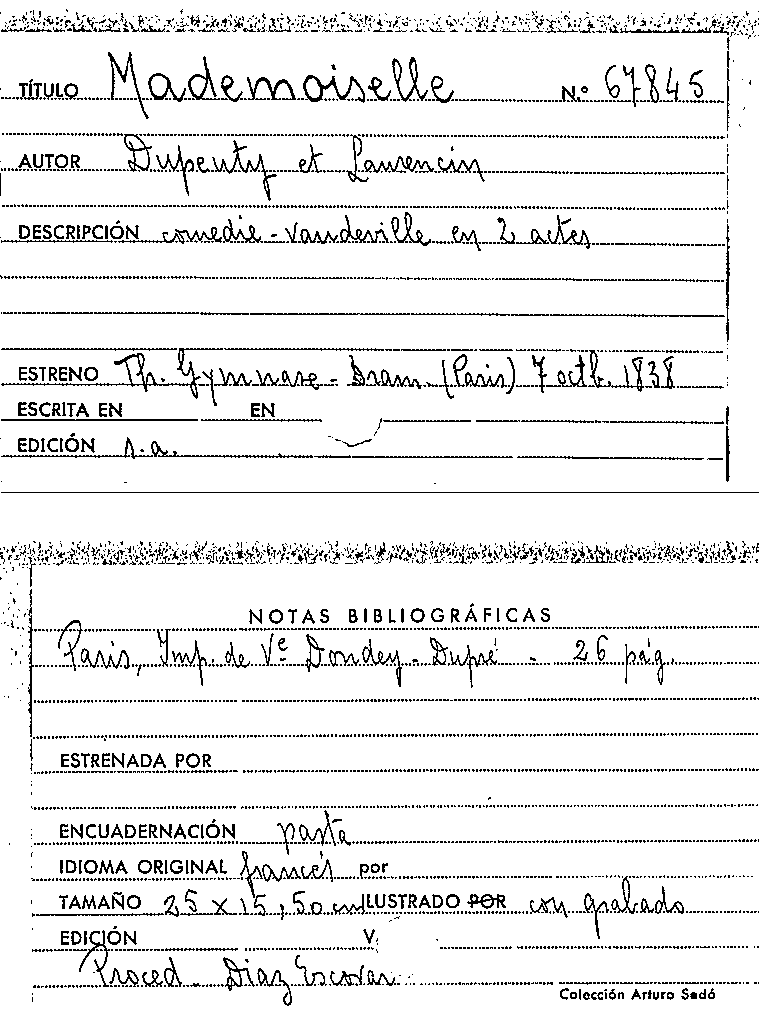 TÍTULO Mademoiselle N.º 67845
AUTOR Dupeuty et Laurencin
DESCRIPCIÓN comedie-vaudeville en 2 actes
ESTRENO Th. Gymnase - Dram. (Paris) 7 octb. 1838
ESCRITA EN EN
EDICIÓN s.a.
NOTAS BIBLIOGRÁFICAS
Paris, Imp. de Vᵉ Dondey-Dupré - 26 pág.
ESTRENADA POR
ENCUADERNACIÓN pasta
IDIOMA ORIGINAL francés por
TAMAÑO 25 x 15,50 cm ILUSTRADO POR con grabado
EDICIÓN V.
Proced. Diaz Escovar
Colección Arturo Sedó